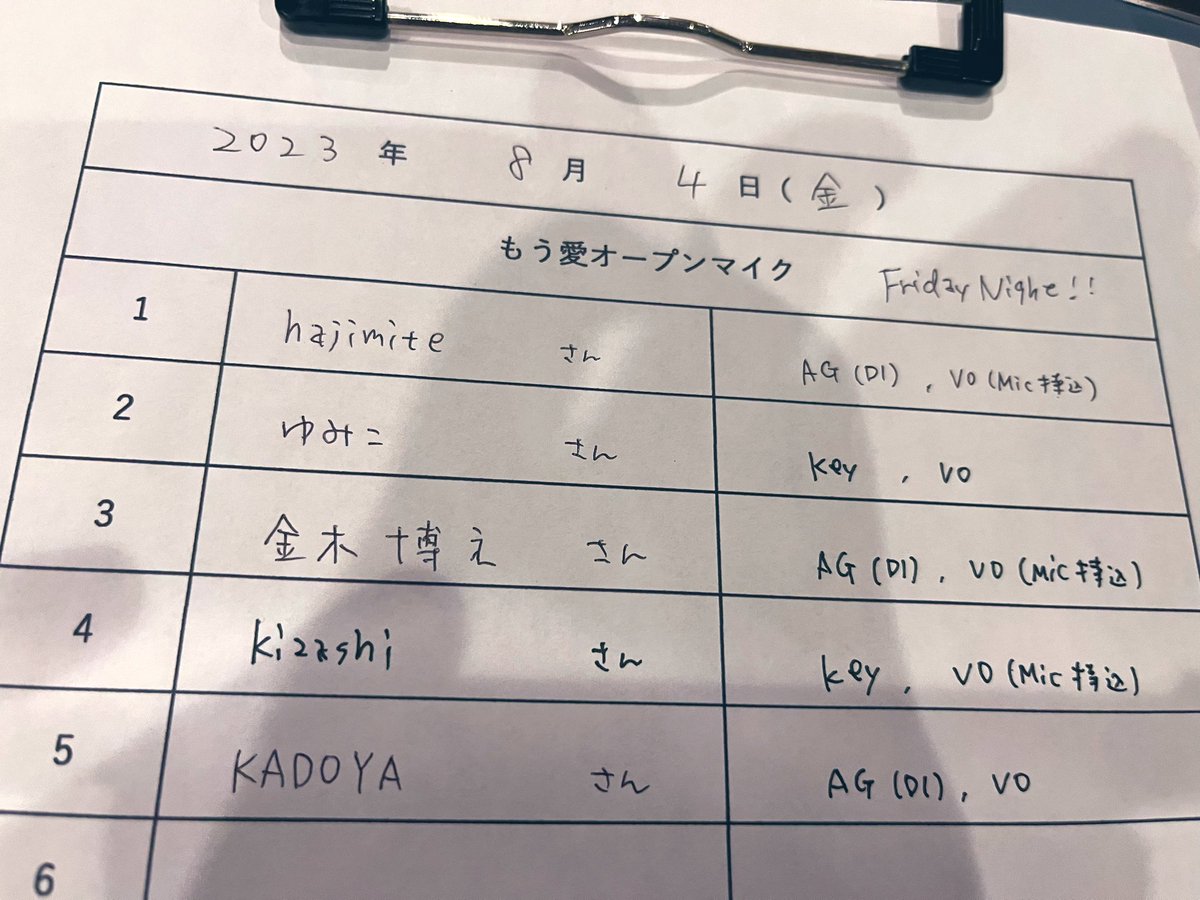 2023 年 8 月 4 日 ( 金 )
もう愛オープンマイク Friday Night!!
1 hajimite さん AG (DI) , VO (Mic 持込)
2 ゆみこ さん key , VO
3 金木 博え さん AG (DI) , VO (Mic 持込)
4 kizashi さん key , VO (Mic 持込)
5 KADOYA さん AG (DI) , VO
6